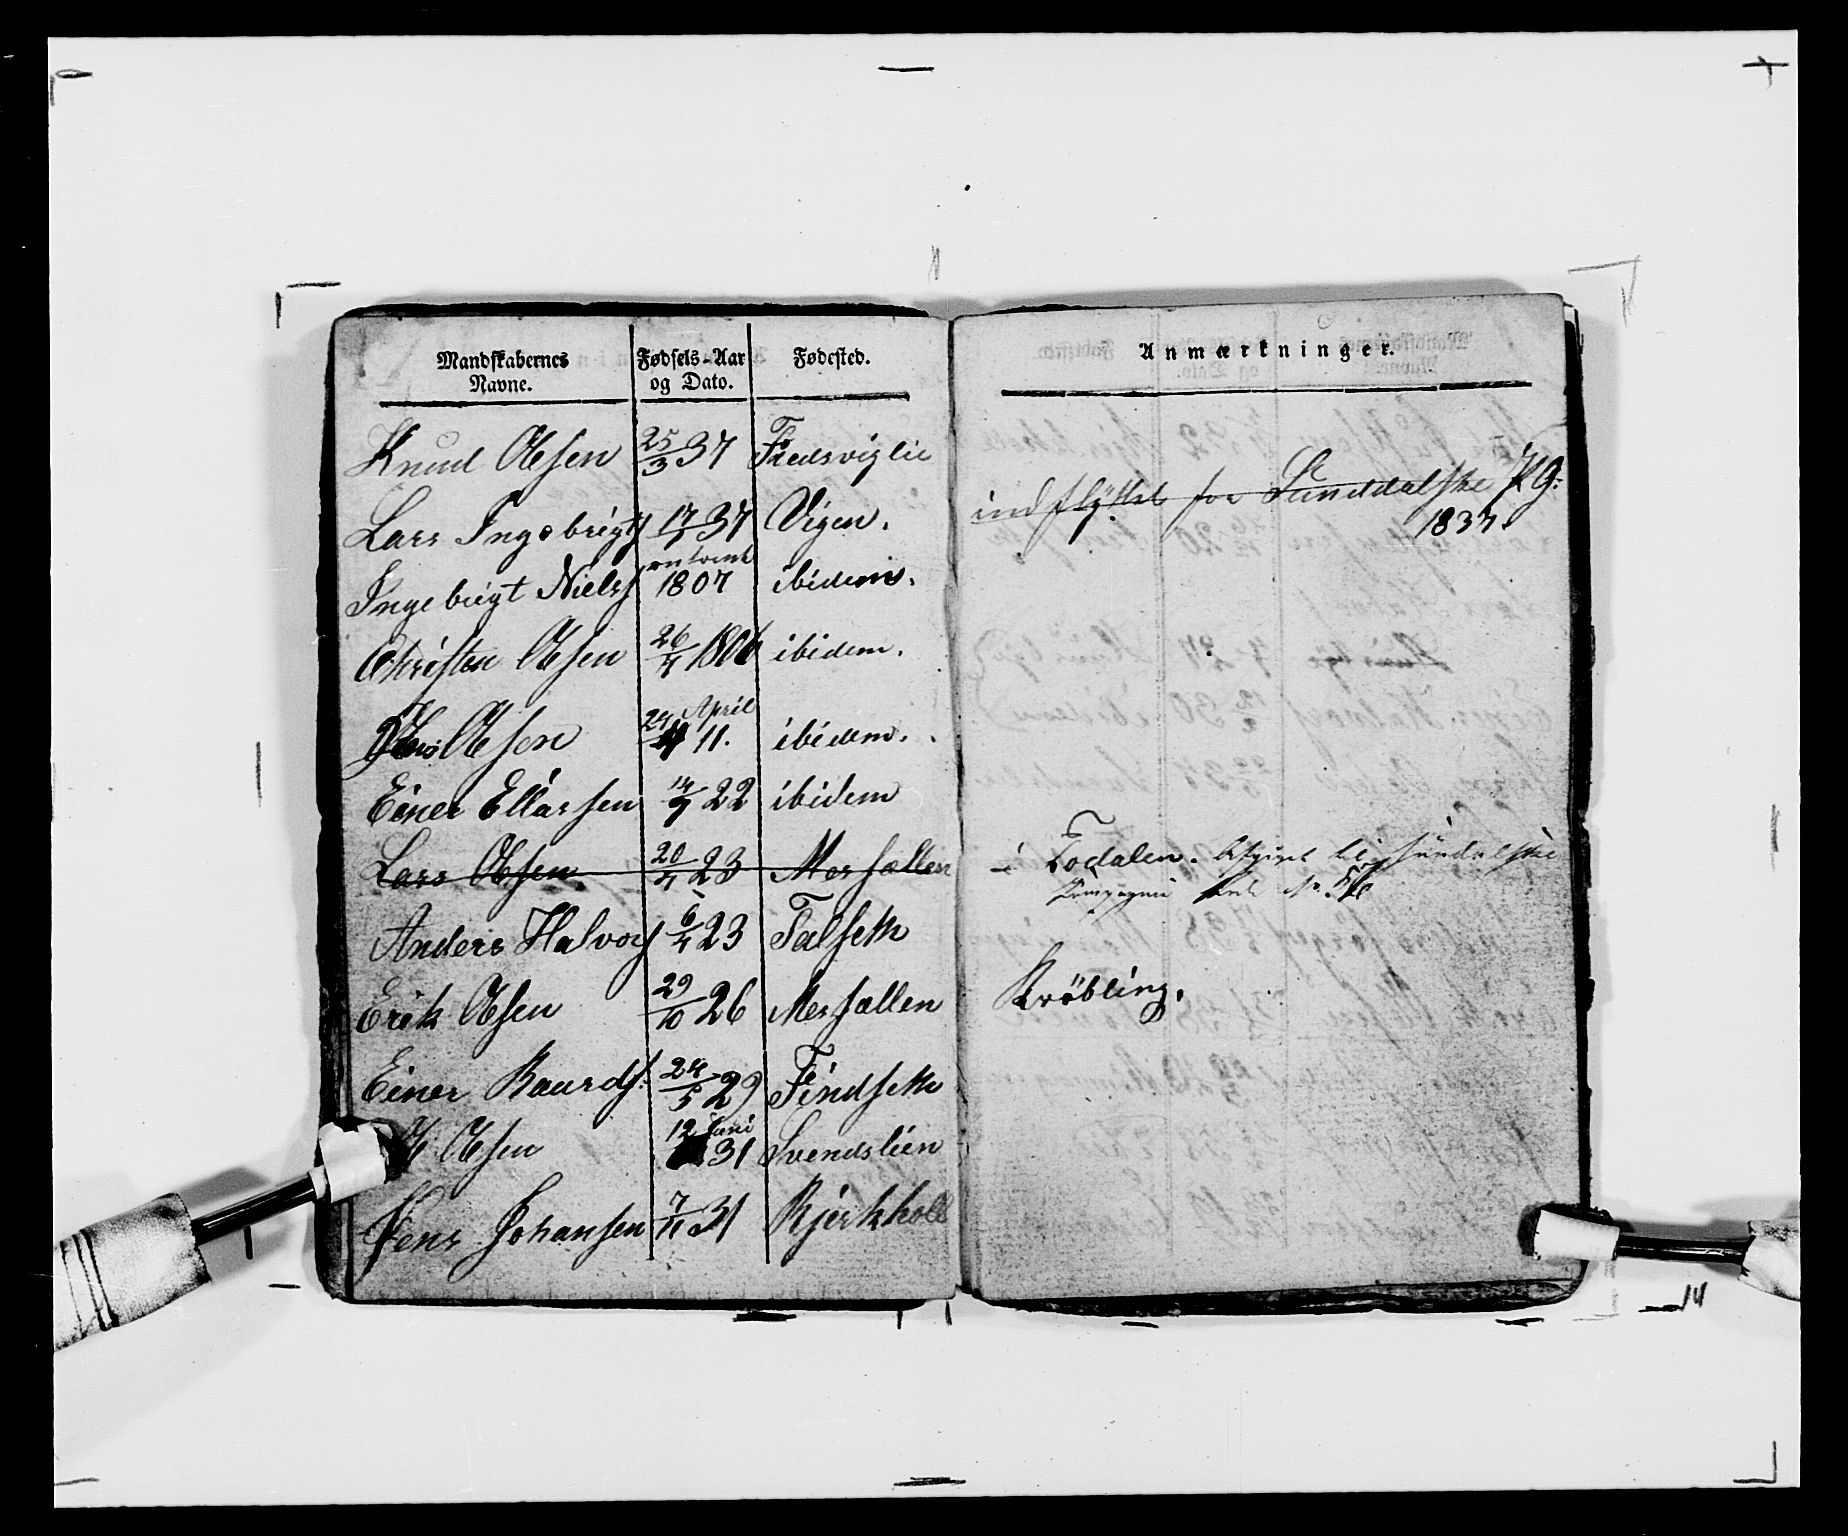 Mandskabernes Navne. Fødsels-Aar og Dato. Fødested.
Knud Olesen 25/3 37 Fredsviglie
Lars Ingebrigts 17/7 37 Vigen.
Ingebrigt Nielss omtrent 1807 ibidem.
Christen Olesen 26/7 1806 ibidem.
Jens Olesen 24 April 11. ibidem.
Einer Ellarsen 14/7 22 ibidem
Lars Olsen 20/7 23 Morfallen
Anders Halvors 6/7 23 Talseth
Erik Olsen 29/10 26 Merfallen
Einer Baards. 24/5 29 Findseth
Ole Olsen 12 Juni 31 Svendslien
Jens Johansen 7/11 31 Bjerkholl
Anmærkninger.
indflyttet fra Sunddalske PG:
1837.
i Todalen. til Sundalske
Kompagni No.
Krøbling.
14